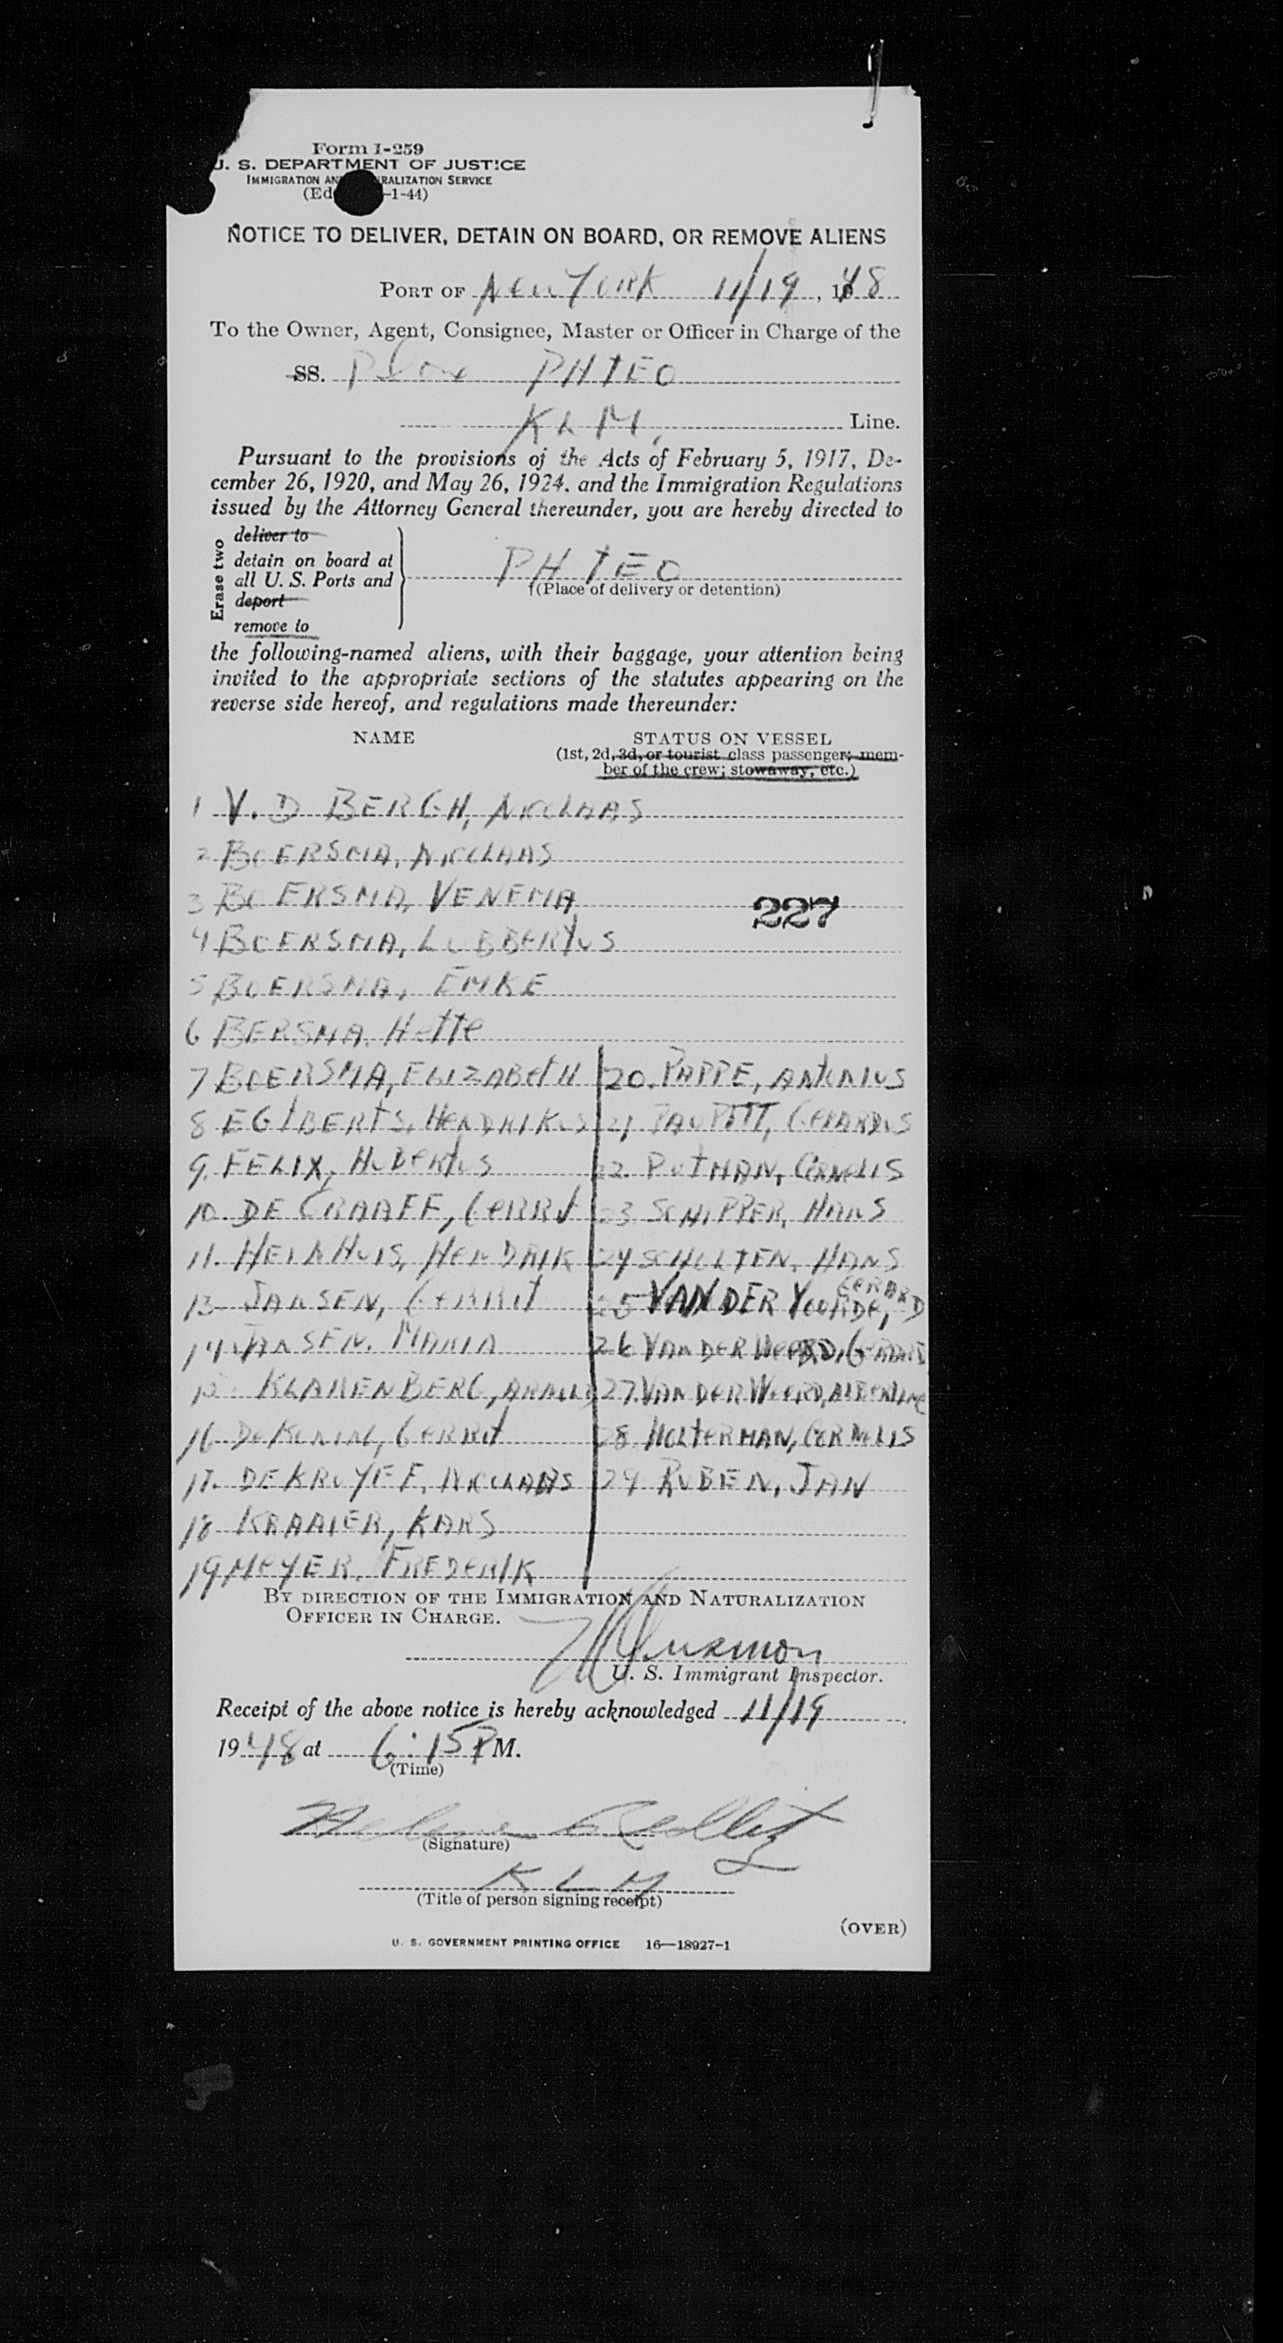 Form I-259
U. S. DEPARTMENT OF JUSTICE
IMMIGRATION AND NATURALIZATION SERVICE
(Ed. -1-44)
NOTICE TO DELIVER, DETAIN ON BOARD, OR REMOVE ALIENS
PORT OF New York 11/19, 1948
To the Owner, Agent, Consignee, Master or Officer in Charge of the
SS. Plane PHTEO
KLM. Line.
Pursuant to the provisions of the Acts of February 5, 1917, De-
cember 26, 1920, and May 26, 1924, and the Immigration Regulations
issued by the Attorney General thereunder, you are hereby directed to
Erase two
deliver to
detain on board at
all U. S. Ports and
deport
remove to
PHTEO
(Place of delivery or detention)
the following-named aliens, with their baggage, your attention being
invited to the appropriate sections of the statutes appearing on the
reverse side hereof, and regulations made thereunder:
NAME STATUS ON VESSEL
(1st, 2d, 3d, or tourist class passenger; mem-
ber of the crew; stowaway, etc.)
1 V. D BERGH, NICOLAAS
2 BOERSMA, NICOLAAS
3 BOERSMA, VENEMA
227
4 BOERSMA, LUBBERTUS
5 BOERSMA, EMKE
6 BERSMA, Hette
7 BOERSMA, ELIZABETH 20. PAPPE, ANTONIUS
8 EGTBERTS, HENDRIKUS 21 GERARDUS
9. FELIX, HUBERTUS 22. PUTMAN, CORNELIS
10. DE GRAAFF, GERRIT 23 SCHIPPER, HANS
11. HEINHUIS, HENDRIK 24 SCHOLTEN, HANS
13 JANSEN, GERRIT 25 VAN DER VOORDE, GERARD
14 JANSEN, MARIA 26 VAN DER WEERD, GERARD
15 KLARENBERG, ARNOLD 27. VAN DER WEERD, ALBERDINE
16 DeKONING, GERRIT 28 HOLTERMAN, CORNELIS
17. DE KRUYFF, NICOLAAS 29 RUBEN, JAN
18 KRAAIER, KARS
19 MEYER, FREDERIK
BY DIRECTION OF THE IMMIGRATION AND NATURALIZATION
OFFICER IN CHARGE.
U. S. Immigrant Inspector.
Receipt of the above notice is hereby acknowledged 11/19
1948 at 6:15 PM.
(Time)
(Signature)
KLM
(Title of person signing receipt)
(OVER)
U. S. GOVERNMENT PRINTING OFFICE 16—18927-1